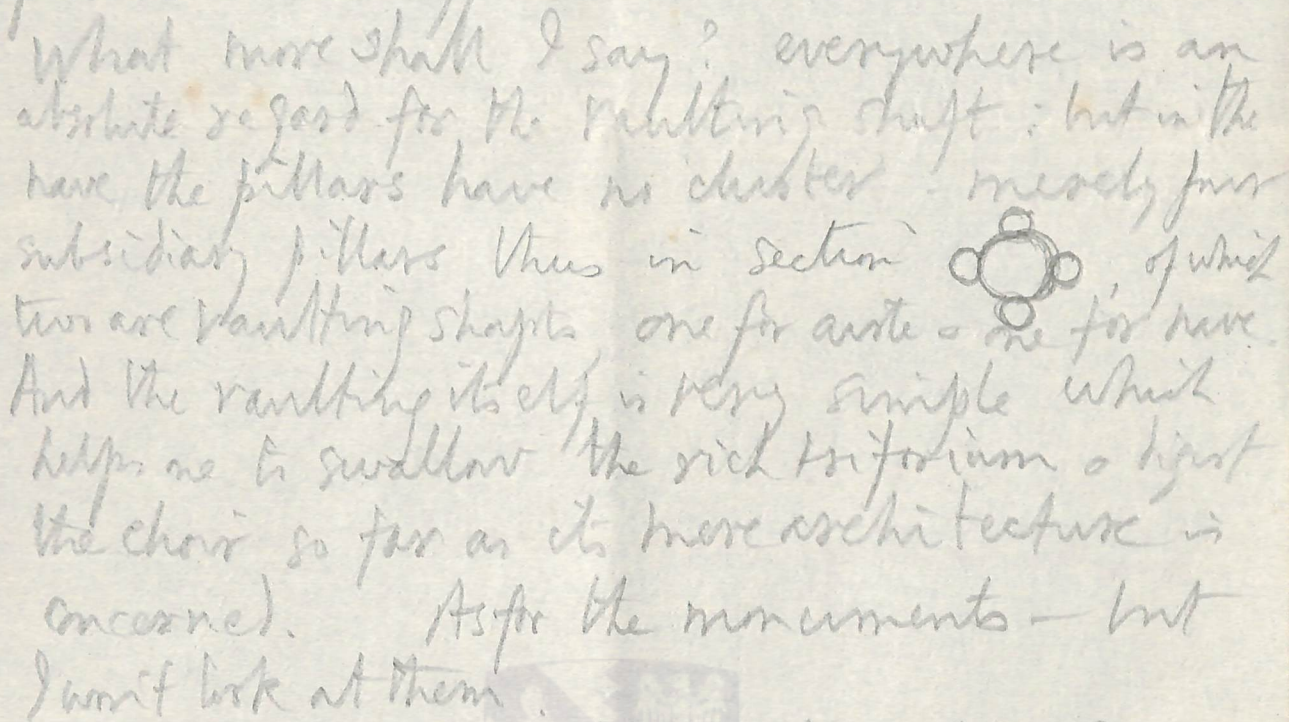 What more shall I say? everywhere is an
absolute regard for the vaulting shaft : but in the
nave the pillars have no cluster : merely four
subsidiary pillars thus in section , of which
two are vaulting shafts, one for aisle & one for nave.
And the vaulting itself is very simple which
helps me to swallow the rich triforium & digest
the choir so far as its mere architecture is
concerned. As for the monuments — but
I won't look at them.